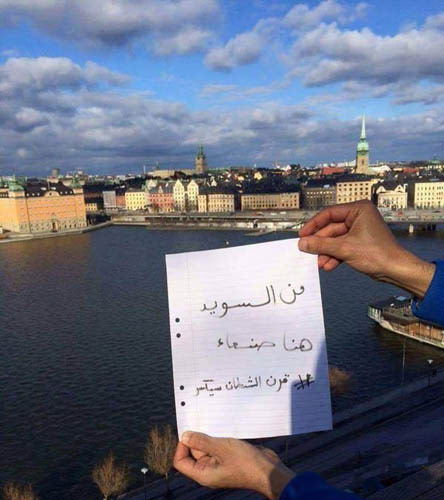 من السويد
هنا صنعاء
# قرن الشطان سيكسر